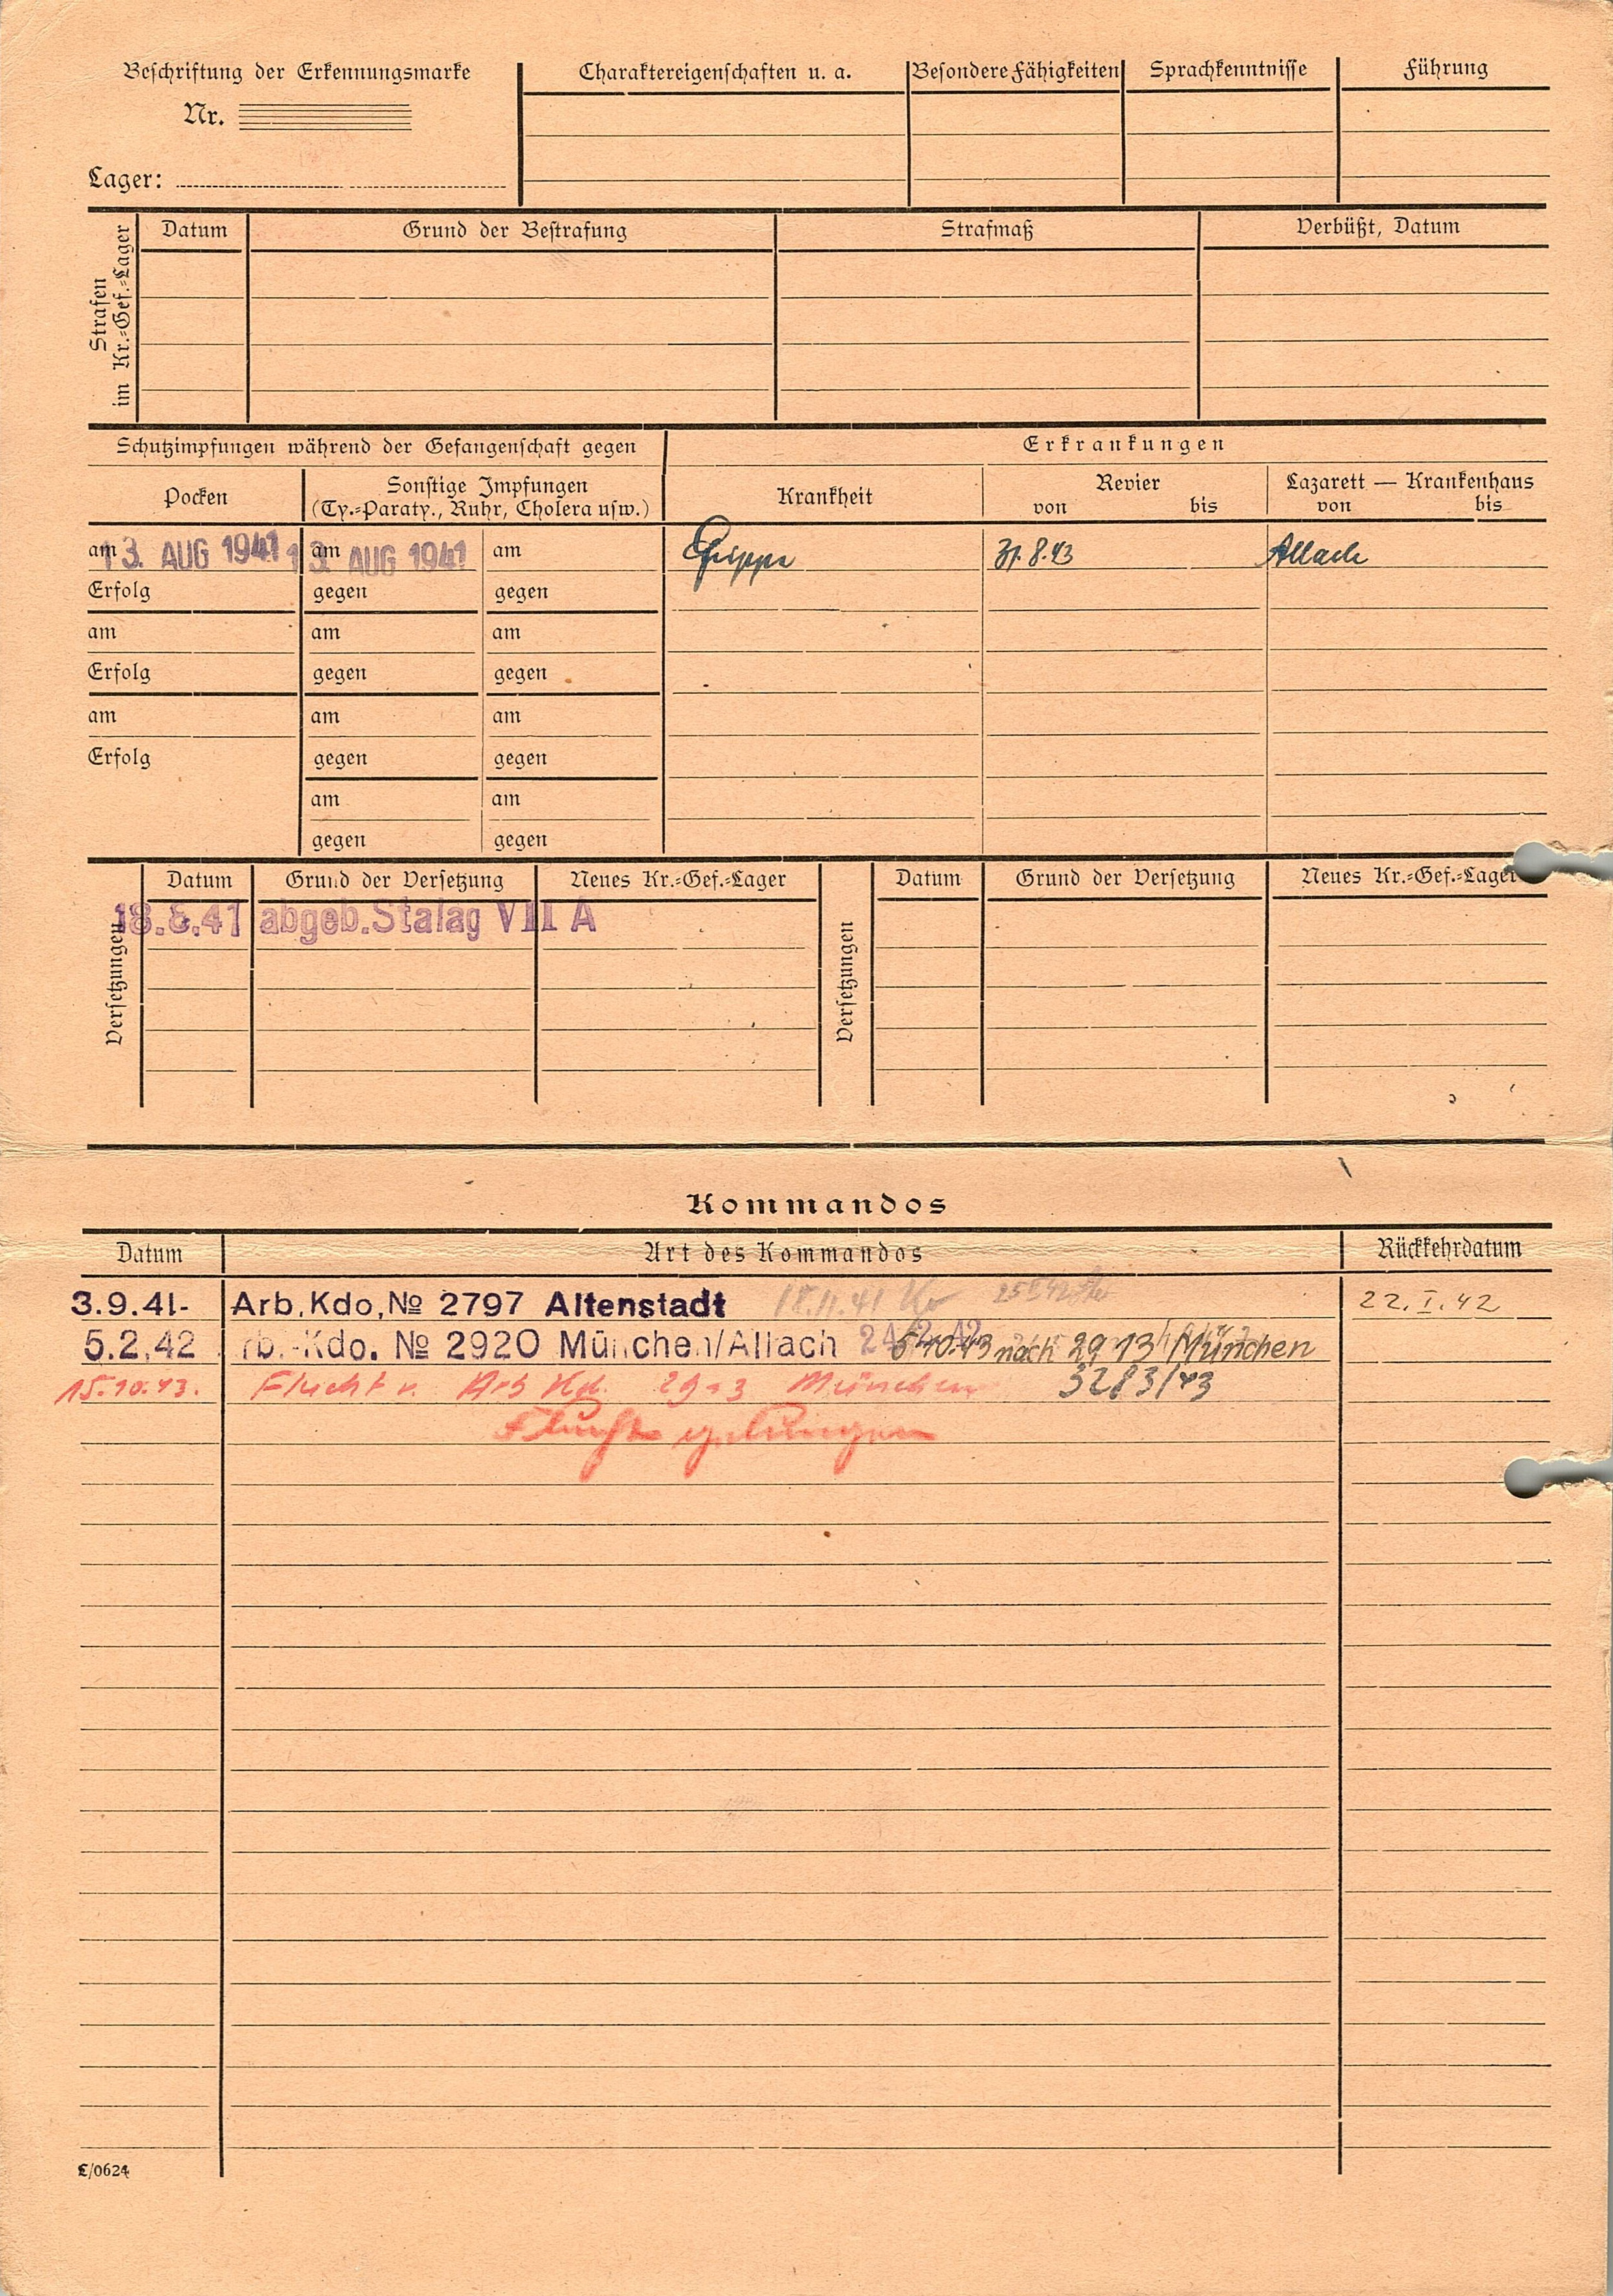 Beschriftung der Erkennungsmarke
Nr.
Lager:
Charaktereigenschaften u. a.
Besondere Fähigkeiten
Sprachkenntnisse
Führung
Strafen
im Kr.-Gef.-Lager
Datum
Grund der Bestrafung
Strafmaß
Verbüßt, Datum
Schutzimpfungen während der Gefangenschaft gegen
Erkrankungen
Pocken
Sonstige Impfungen
(Ty.-Paraty., Ruhr, Cholera usw.)
Krankheit
Revier
von bis
Lazarett — Krankenhaus
von bis
am 13. AUG 1941 am 13. AUG 1941 am Grippe 31.8.43 Allach
Erfolg gegen gegen
am am am
Erfolg gegen gegen
am am am
Erfolg gegen gegen
am am
gegen gegen
Versetzungen
Datum Grund der Versetzung Neues Kr.-Gef.-Lager
18.8.41 abgeb. Stalag VII A
Versetzungen
Datum Grund der Versetzung Neues Kr.-Gef.-Lager
Kommandos
Datum Art des Kommandos Rückkehrdatum
3.9.41- Arb.Kdo.№ 2797 Altenstadt 18.11.41 22.I.42
5.2.42 rb.-Kdo. № 2920 München/Allach 10.43 nach 2913 München
15.10.43. Flucht v. Arb Kd. München 3283/43
Flucht gelungen
L/0624